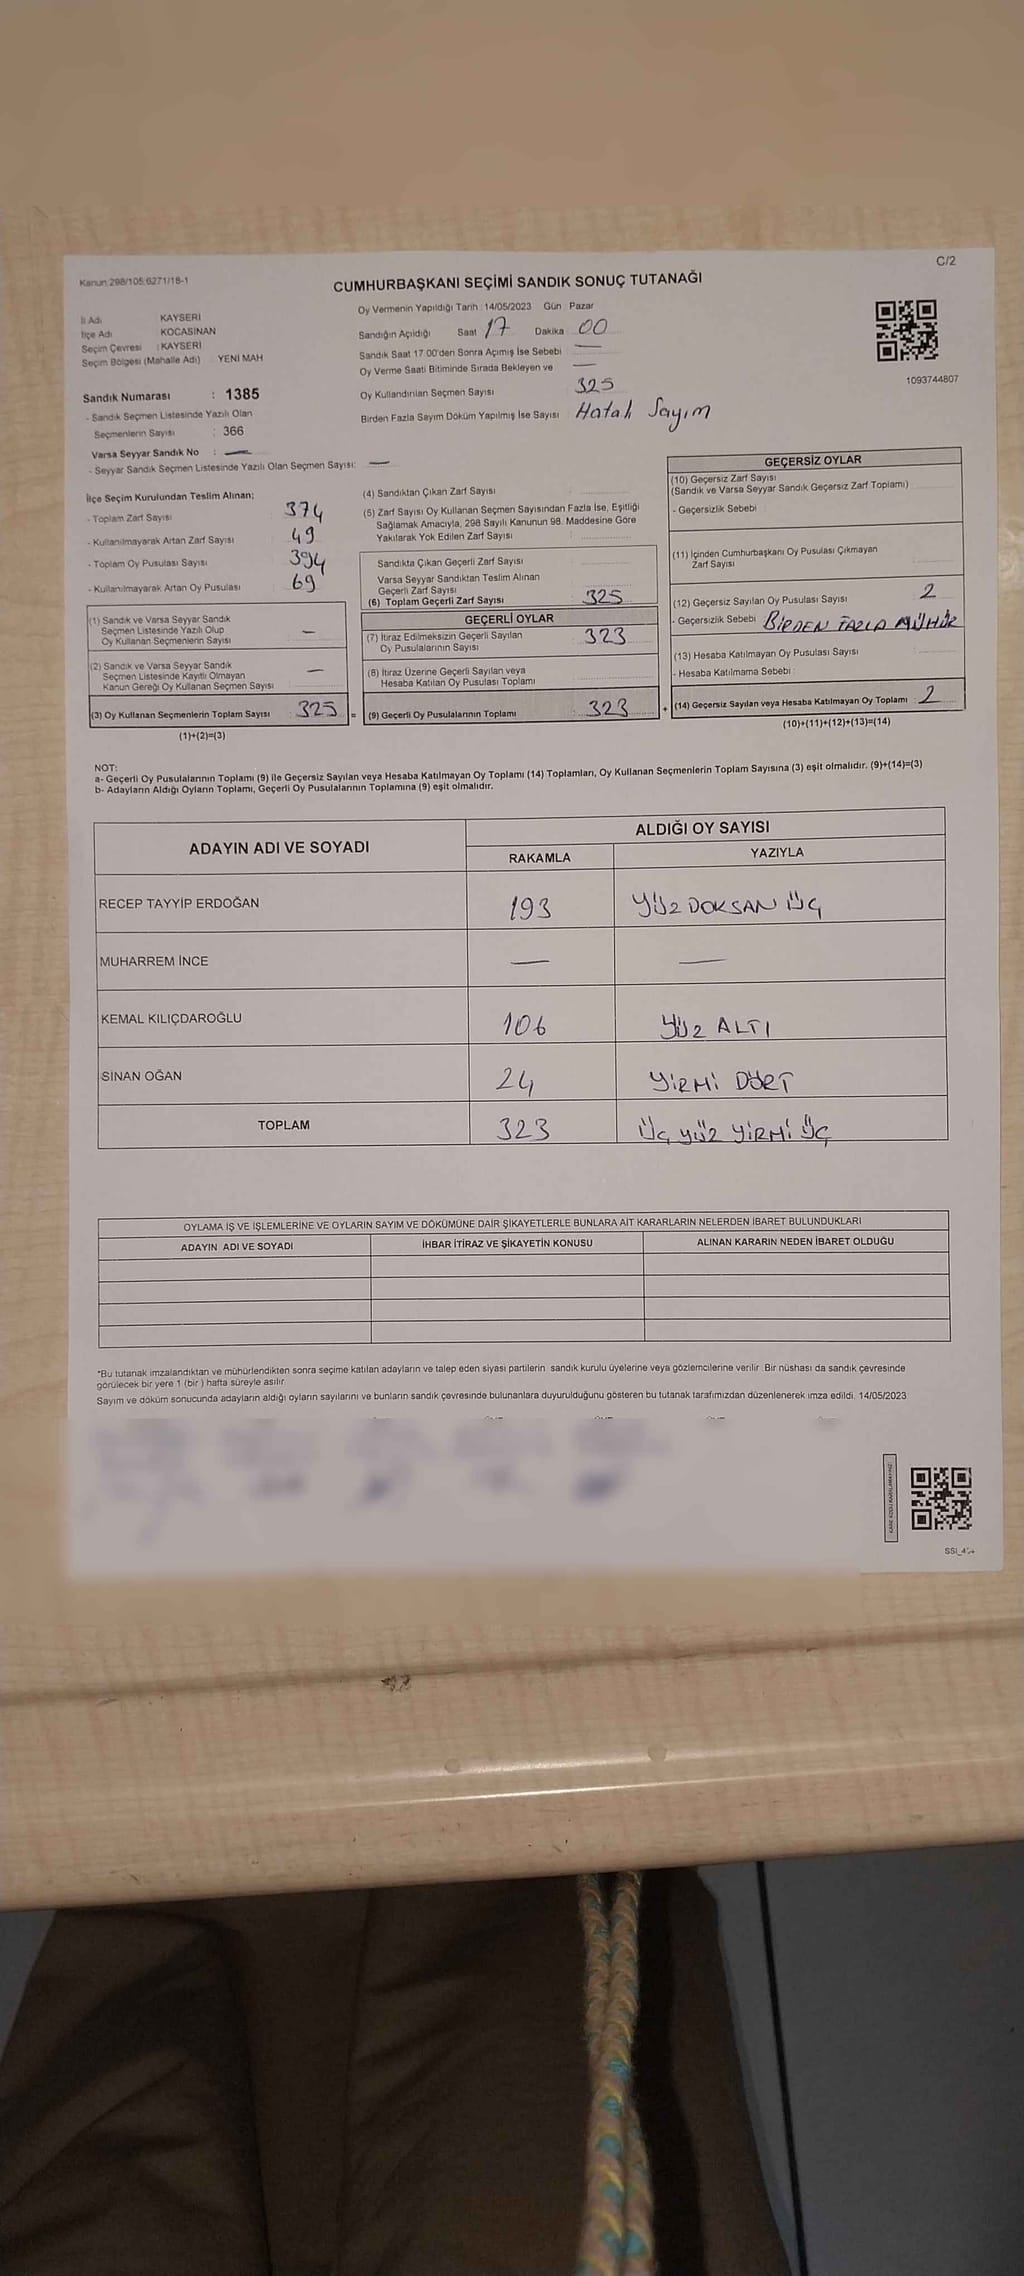 Kanun:298/105;6271/18-1
C/2
CUMHURBAŞKANI SEÇİMİ SANDIK SONUÇ TUTANAĞI
İl Adı KAYSERİ
İlçe Adı KOCASİNAN
Seçim Çevresi : KAYSERİ
Seçim Bölgesi (Mahalle Adı) YENİ MAH
Sandık Numarası : 1385
- Sandık Seçmen Listesinde Yazılı Olan
Seçmenlerin Sayısı : 366
Varsa Seyyar Sandık No : —
- Seyyar Sandık Seçmen Listesinde Yazılı Olan Seçmen Sayısı: —
Oy Vermenin Yapıldığı Tarih : 14/05/2023 Gün Pazar
Sandığın Açıldığı Saat 17 Dakika 00
Sandık Saat 17:00'den Sonra Açımış İse Sebebi —
Oy Verme Saati Bitiminde Sırada Bekleyen ve —
Oy Kullandırılan Seçmen Sayısı 325
Birden Fazla Sayım Döküm Yapılmış İse Sayısı Hatalı Sayım
1093744807
İlçe Seçim Kurulundan Teslim Alınan;
- Toplam Zarf Sayısı 374
- Kullanılmayarak Artan Zarf Sayısı 49
- Toplam Oy Pusulası Sayısı 394
- Kullanılmayarak Artan Oy Pusulası 69
(1) Sandık ve Varsa Seyyar Sandık
Seçmen Listesinde Yazılı Olup
Oy Kullanan Seçmenlerin Sayısı —
(2) Sandık ve Varsa Seyyar Sandık
Seçmen Listesinde Kayıtlı Olmayan
Kanun Gereği Oy Kullanan Seçmen Sayısı —
(3) Oy Kullanan Seçmenlerin Toplam Sayısı : 325 =
(1)+(2)=(3)
(4) Sandıktan Çıkan Zarf Sayısı
(5) Zarf Sayısı Oy Kullanan Seçmen Sayısından Fazla İse, Eşitliği
Sağlamak Amacıyla, 298 Sayılı Kanunun 98. Maddesine Göre
Yakılarak Yok Edilen Zarf Sayısı
Sandıkta Çıkan Geçerli Zarf Sayısı
Varsa Seyyar Sandıktan Teslim Alınan
Geçerli Zarf Sayısı
(6) Toplam Geçerli Zarf Sayısı 325
GEÇERLİ OYLAR
(7) İtiraz Edilmeksizin Geçerli Sayılan
Oy Pusulalarının Sayısı 323
(8) İtiraz Üzerine Geçerli Sayılan veya
Hesaba Katılan Oy Pusulası Toplamı
(9) Geçerli Oy Pusulalarının Toplamı 323 +
GEÇERSİZ OYLAR
(10) Geçersiz Zarf Sayısı
(Sandık ve Varsa Seyyar Sandık Geçersiz Zarf Toplamı)
- Geçersizlik Sebebi :
(11) İçinden Cumhurbaşkanı Oy Pusulası Çıkmayan
Zarf Sayısı
(12) Geçersiz Sayılan Oy Pusulası Sayısı 2
- Geçersizlik Sebebi BİRDEN FAZLA MÜHÜR
(13) Hesaba Katılmayan Oy Pusulası Sayısı
- Hesaba Katılmama Sebebi :
(14) Geçersiz Sayılan veya Hesaba Katılmayan Oy Toplamı 2
(10)+(11)+(12)+(13)=(14)
NOT:
a- Geçerli Oy Pusulalarının Toplamı (9) ile Geçersiz Sayılan veya Hesaba Katılmayan Oy Toplamı (14) Toplamları, Oy Kullanan Seçmenlerin Toplam Sayısına (3) eşit olmalıdır. (9)+(14)=(3)
b- Adayların Aldığı Oyların Toplamı, Geçerli Oy Pusulalarının Toplamına (9) eşit olmalıdır.
ADAYIN ADI VE SOYADI ALDIĞI OY SAYISI
RAKAMLA YAZIYLA
RECEP TAYYİP ERDOĞAN 193 YÜZ DOKSAN ÜÇ
MUHARREM İNCE — —
KEMAL KILIÇDAROĞLU 106 YÜZ ALTI
SİNAN OĞAN 24 YİRMİ DÖRT
TOPLAM 323 ÜÇ YÜZ YİRMİ ÜÇ
OYLAMA İŞ VE İŞLEMLERİNE VE OYLARIN SAYIM VE DÖKÜMÜNE DAİR ŞİKAYETLERLE BUNLARA AİT KARARLARIN NELERDEN İBARET BULUNDUKLARI
ADAYIN ADI VE SOYADI İHBAR İTİRAZ VE ŞİKAYETİN KONUSU ALINAN KARARIN NEDEN İBARET OLDUĞU
*Bu tutanak imzalandıktan ve mühürlendikten sonra seçime katılan adayların ve talep eden siyasi partilerin sandık kurulu üyelerine veya gözlemcilerine verilir. Bir nüshası da sandık çevresinde
görülecek bir yere 1 (bir ) hafta süreyle asılır.
Sayım ve döküm sonucunda adayların aldığı oyların sayılarını ve bunların sandık çevresinde bulunanlara duyurulduğunu gösteren bu tutanak tarafımızdan düzenlenerek imza edildi. 14/05/2023